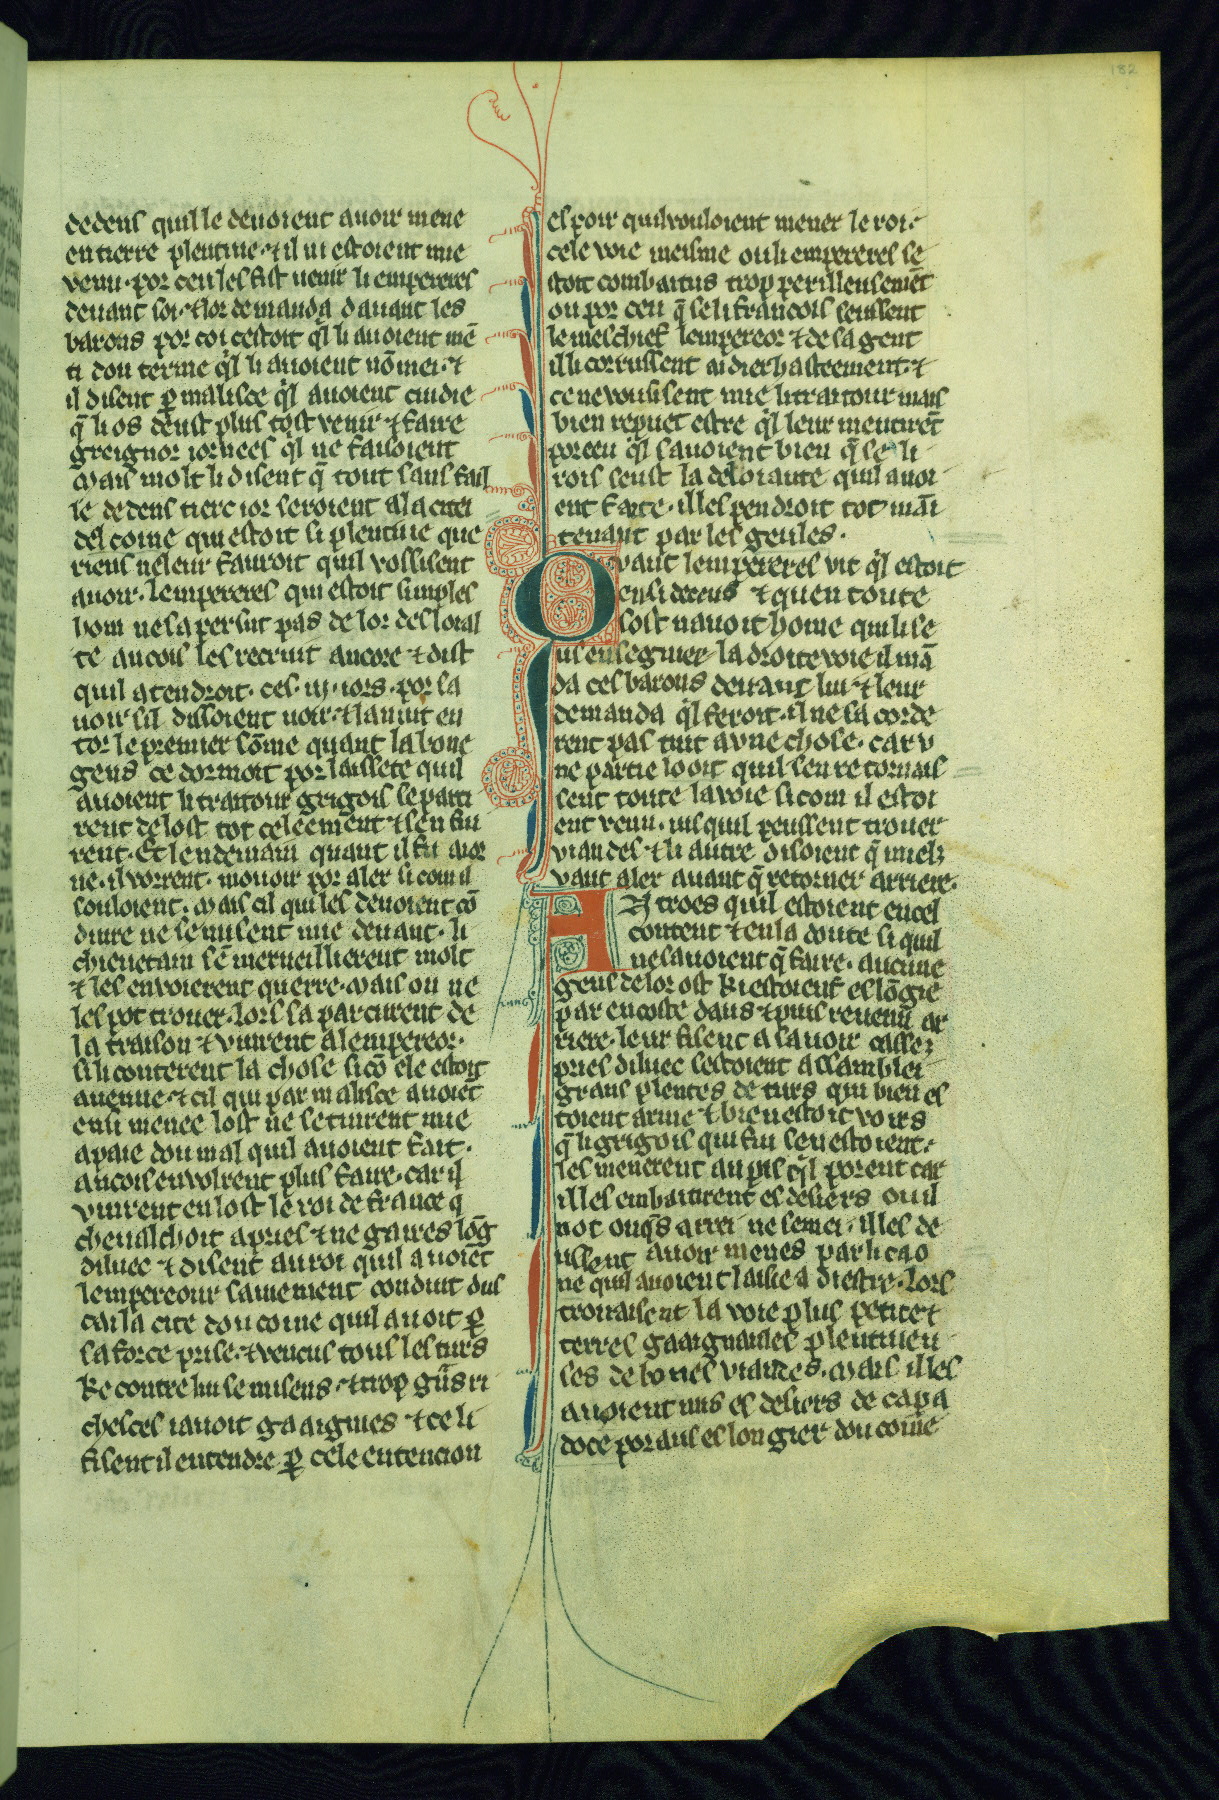 182
dedens quil le devoient avoir mene
en tierre plentive · ⁊ il ni estoient mie
venu · por ceu les fist venir li empereres
devant soi · ⁊ lor demanda davant les
barons por coi cestoit ql̃ li avoient mẽ
ti dou terme ql̃ li avoient nõmei · ⁊
il disent ꝑ malisce ql̃ avoient cuidie
q̃ li os deust plus tost venir ⁊ faire
greignor iornees ql̃ ne faisoient
Mais molt li disent q̃ tout sans fail
le dedens tierc ior seroient a la citei
del coine qui estoit si plentive que
riens ne leur fauroit quil vossisent
avoir · lempereres qui estoit simples
hom ne sa persut pas de lor desloial
te ancois les recruit ancore ⁊ dist
quil atendroit · ces · iii · iors · por sa
voir sil dissoient voir · ⁊ la nuit en
tor le premier sõme quant la bone
gens ce dormoit por laissete quil
avoient li traitour grigois se parti
rent de lost tot celeement ⁊ sen fui
rent · Et lendemain quant il fu aior
ne · il vorrent · movoir por aler si com il
souloient · Mais cil qui les devoient cõ
duire ne se misent mie devant · li
chievetain sẽ merveillierent molt
⁊ les envoierent querre · Mais on ne
les pot trover · lors sa parcurent de
la traison ⁊ vinrent a lempereor ·
si li conterent la chose si cõ ele estoit
avenue · ⁊ cil qui par malisce avoiẽt
ensi menee lost ne se tinrent mie
a paie dou mal quil avoient fait ·
ancois en volrent plus faire · car il
vinrent en lost le roi de france q
chevalchoit apries ⁊ ne gaires lõg
diluec ⁊ disent au roi quil avoiẽt
lempereour sainement conduit dus
cai la cite dou coine quil avoit ꝑ
sa force prise · ⁊ vencus tous les turs
ke contre lui se misens · ⁊ trop grãs ri
chesces i avoit gaaignies ⁊ ce li
fisent il entendre ꝑ cele entencion
espoir quil vouloient mener le roi ·
cele voie meisme ou li empereres se
stoit combatus trop perilleusemẽt
ou por ceu q̃ se li francois seussent
le meschief lempereor ⁊ de sa gent
il li corrussent aidier hastrement · ⁊
ce ne vousissent mie li traitour mais
bien reput estre ql̃ leur mentirẽt
por ceu ql̃ savoient bien q̃ se li
rois seust la desloiaute quil avoi
ent faite · illes pendroit tot mãi
tenant par les geules ·
Quant lempereres vit ql̃ estoit
ensi decens ⁊ quen toute
lost navoit home qui li se
ust ensegnier la droite voie il mã
da ces barons devant lui ⁊ leur
demanda ql̃ feroit · il ne sa corde
rent pas tuit a une chose · car v
ne partie looit quil sen retornais
sent toute la voie si com il estoi
ent venu · iusquil peussent trover
viandes · ⁊ li autre disoient q̃ mielz
vaut aler avant q̃ retorner arriere ·
Antroes quil estoient en cel
content ⁊ en la doute si quil
ne savoient q̃ faire · aucune
gens de lor ost ki estoient eslõgie
par en coste daus ⁊ puis revenu ar
riere · leur fisent a savoir casse
pries diluec sestoient assamblei
grans plentes de turs qui bien es
toient arme ⁊ bien estoit voirs
q̃ li grigois qui fui sen estoient ·
les menerent au pis ql̃ porent car
illes embatirent es desiers ou il
not onq̃s arrei ne semei · illes de
ussent avoir menes par licao
ne quil avoient laisie a diestre · lors
trovaisent la voie plus petite ⁊
terres gaaignables plentiveu
ses de bones viandes · Mais illes
avoient mis es desiers de capa
doce por aus eslongier dou coine